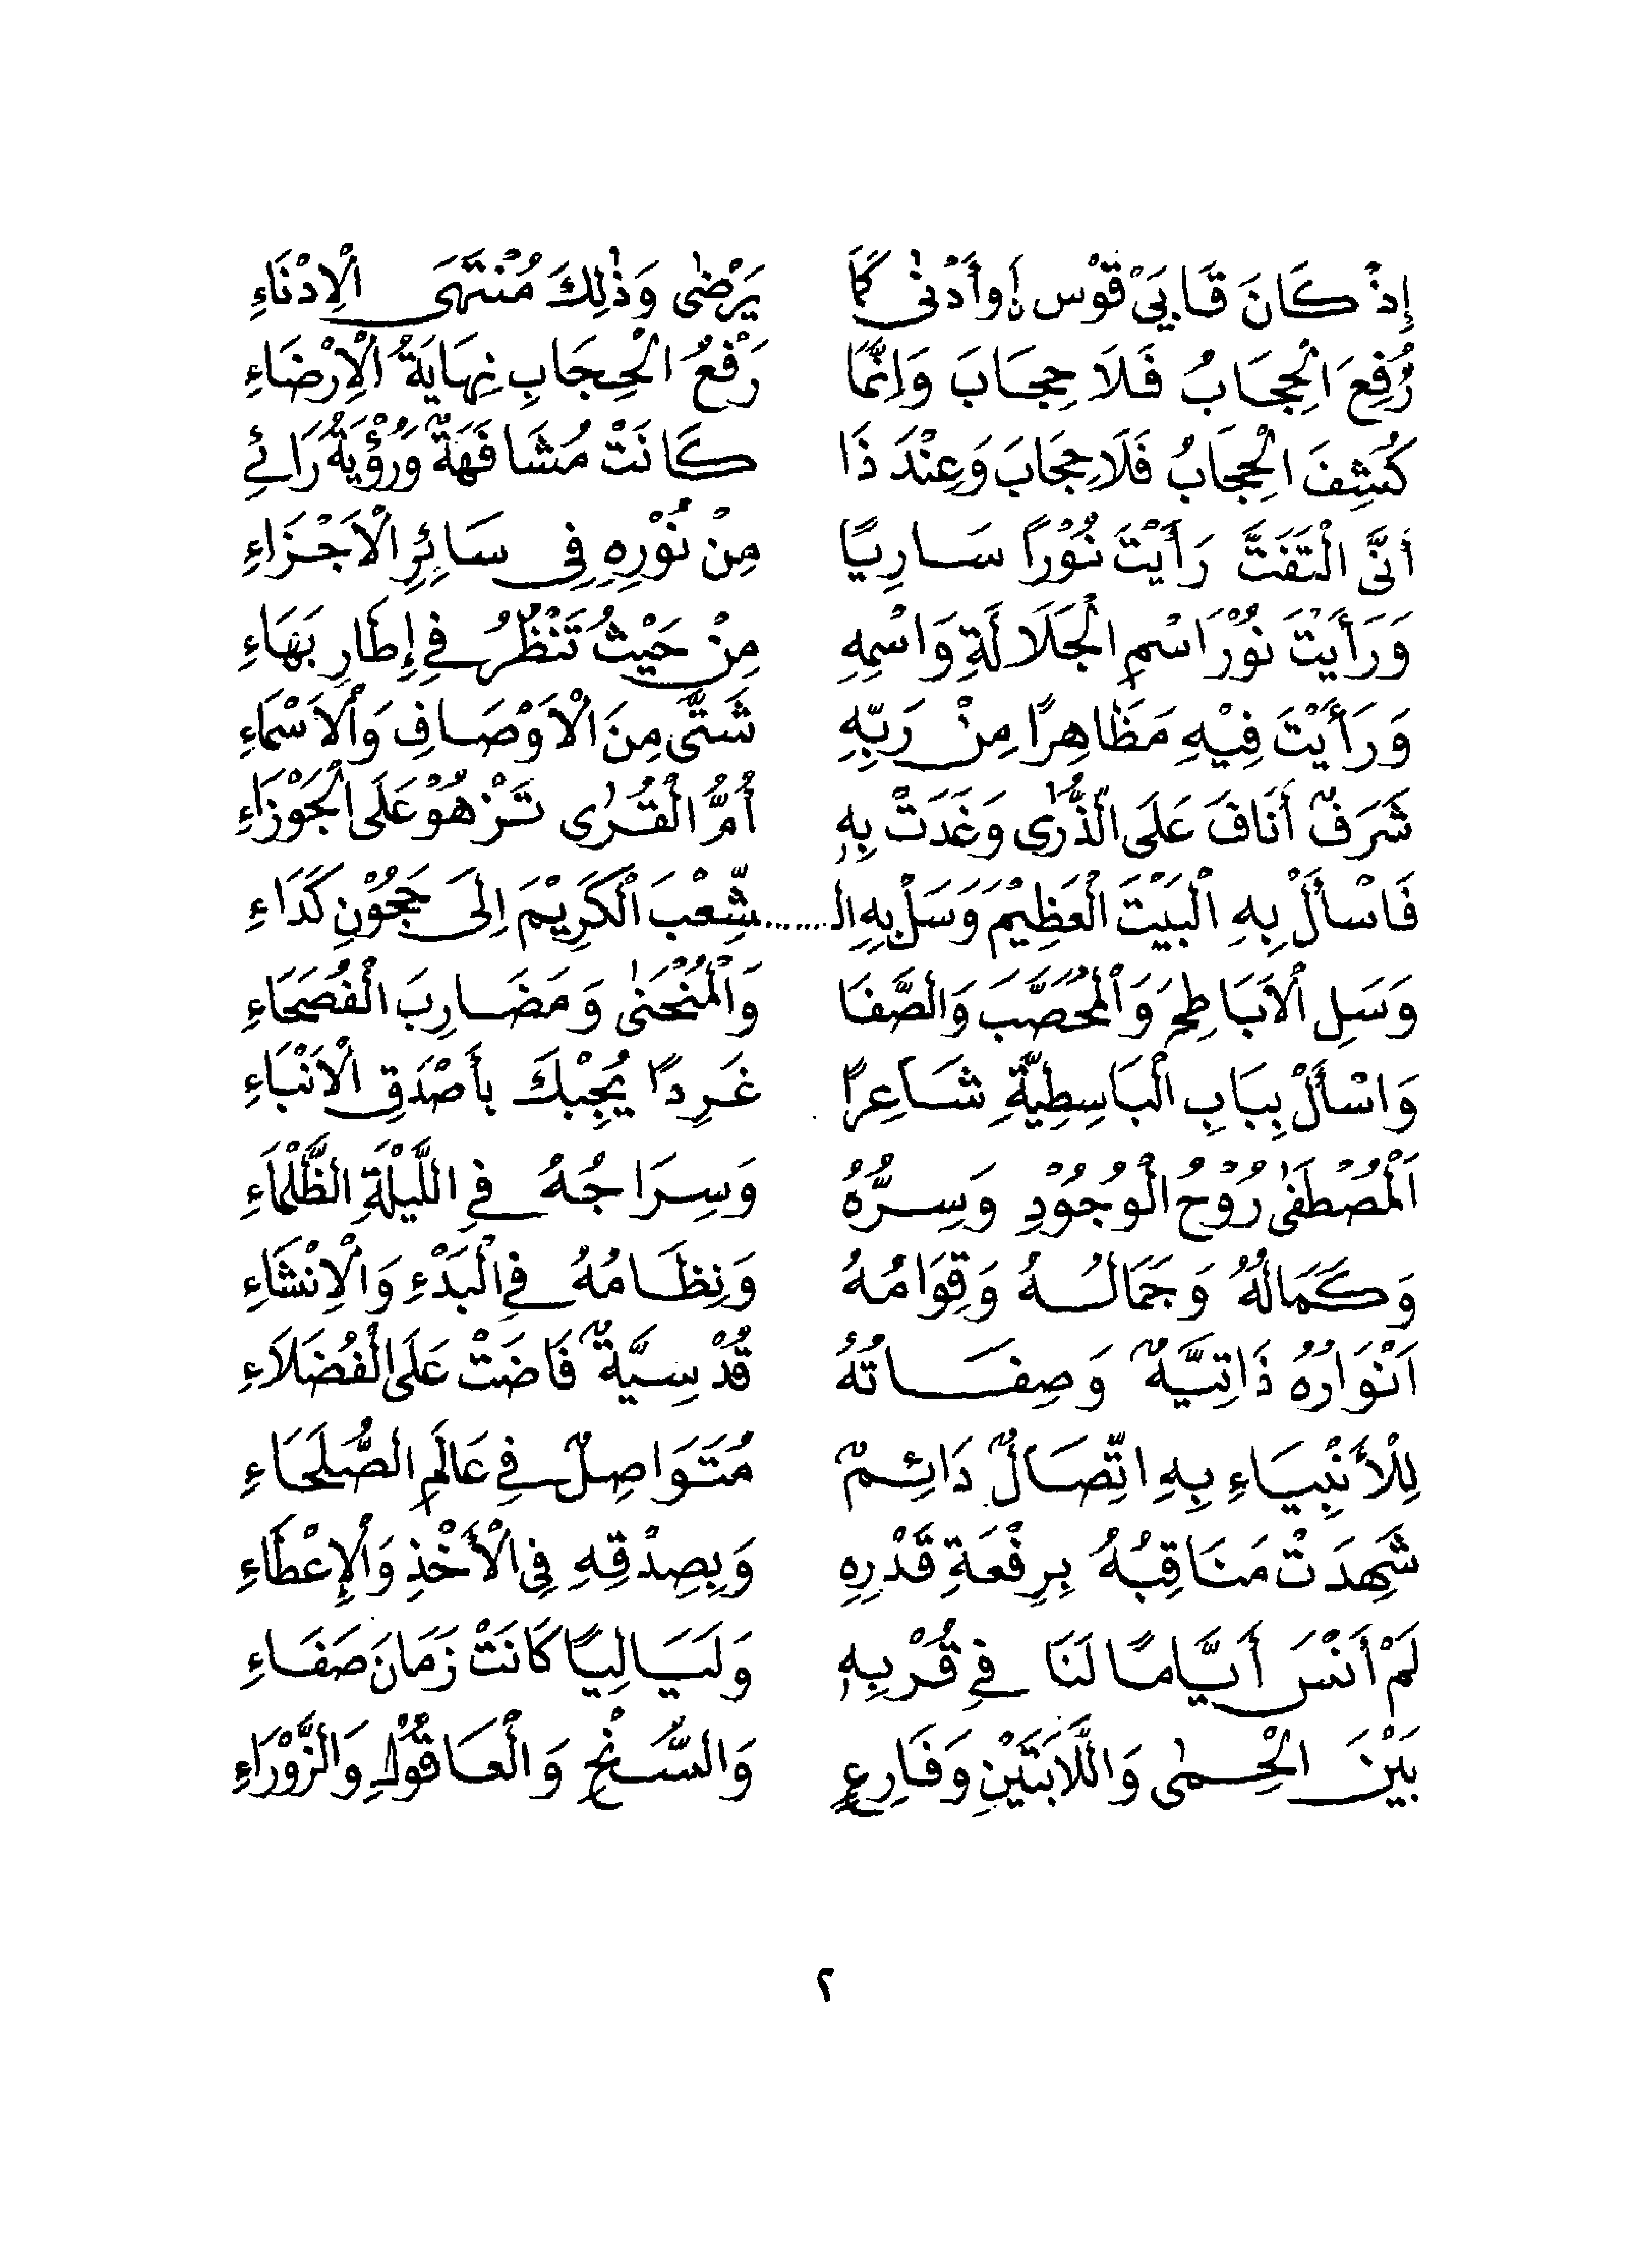 إِذْ كَانَ قَابَيْ قَوْسِ أَوأَدْنٰى كَمَا يَرْضٰى وَذٰلِكَ مُنْتَهَى الْإِدْنَاءِ
رُفِعَ الْحِجَابُ فَلَا حِجَابَ وَاِنَّمَا رَفْعُ الْحِجَابِ نِهَايَةُ الْاِرْضَاءِ
كُشِفَ الْحِجَابُ فَلَا حِجَابَ وَعِنْدَ ذَا كَانَتْ مُشَافَهَةٌ وَرُؤْيَةُ رَائِي
اَنَّى الْتَفَتَّ رَأَيْتَ نُوْرًا سَارِيًا مِنْ نُوْرِهِ فِي سَائِرِ الْاَجْزَاءِ
وَرَأَيْتَ نُوْرَ اسْمِ الْجَلَالَةِ وَاسْمِهِ مِنْ حَيْثُ تَنْظُرُ فِي إِطَارِ بَهَاءِ
وَرَأَيْتَ فِيْهِ مَظَاهِرًا مِنْ رَبِّهِ شَتَّى مِنَ الْاَوْصَافِ وَالْاَسْمَاءِ
شَرَفٌ أَنَافَ عَلَى الذُّرٰى وَغَدَتْ بِهِ أُمُّ الْقُرٰى تَزْهُوْ عَلَى الْجَوْزَاءِ
فَاسْأَلْ بِهِ الْبَيْتَ الْعَظِيْمَ وَسَلْ بِهِ الـ......شِّعْبَ الْكَرِيْمَ اِلَى حَجُوْنِ كَدَاءِ
وَسَلِ الْاَبَاطِحَ وَالْمُحَصَّبَ وَالصَّفَا وَالْمُنْحَنٰى وَمَضَارِبَ الْفُصَحَاءِ
وَاسْأَلْ بِبَابِ الْبَاسِطِيَّةِ شَاعِرًا غَرِدًا يُجِبْكَ بِأَصْدَقِ الْاَنْبَاءِ
اَلْمُصْطَفٰى رُوْحُ الْوُجُوْدِ وَسِرُّهُ وَسِرَاجُهُ فِي اللَّيْلَةِ الظَّلْمَاءِ
وَكَمَالُهُ وَجَمَالُهُ وَقِوَامُهُ وَنِظَامُهُ فِي الْبَدْءِ وَالْاِنْشَاءِ
اَنْوَارُهُ ذَاتِيَّةٌ وَصِفَاتُهُ قُدْسِيَّةٌ فَاضَتْ عَلَى الْفُضَلَاءِ
لِلْأَنْبِيَاءِ بِهِ اتِّصَالٌ دَائِمٌ مُتَوَاصِلٌ فِي عَالَمِ الصُّلَحَاءِ
شَهِدَتْ مَنَاقِبُهُ بِرِفْعَةِ قَدْرِهِ وَبِصِدْقِهِ فِي الْأَخْذِ وَالْإِعْطَاءِ
لَمْ أَنْسَ أَيَّامًا لَنَا فِي قُرْبِهِ وَلَيَالِيًا كَانَتْ زَمَانَ صَفَاءِ
بَيْنَ الْحِمٰى وَاللَّابَتَيْنِ وَفَارِعٍ وَالسُّنْحِ وَالْعَاقُوْلِ وَالزَّوْرَاءِ
٢